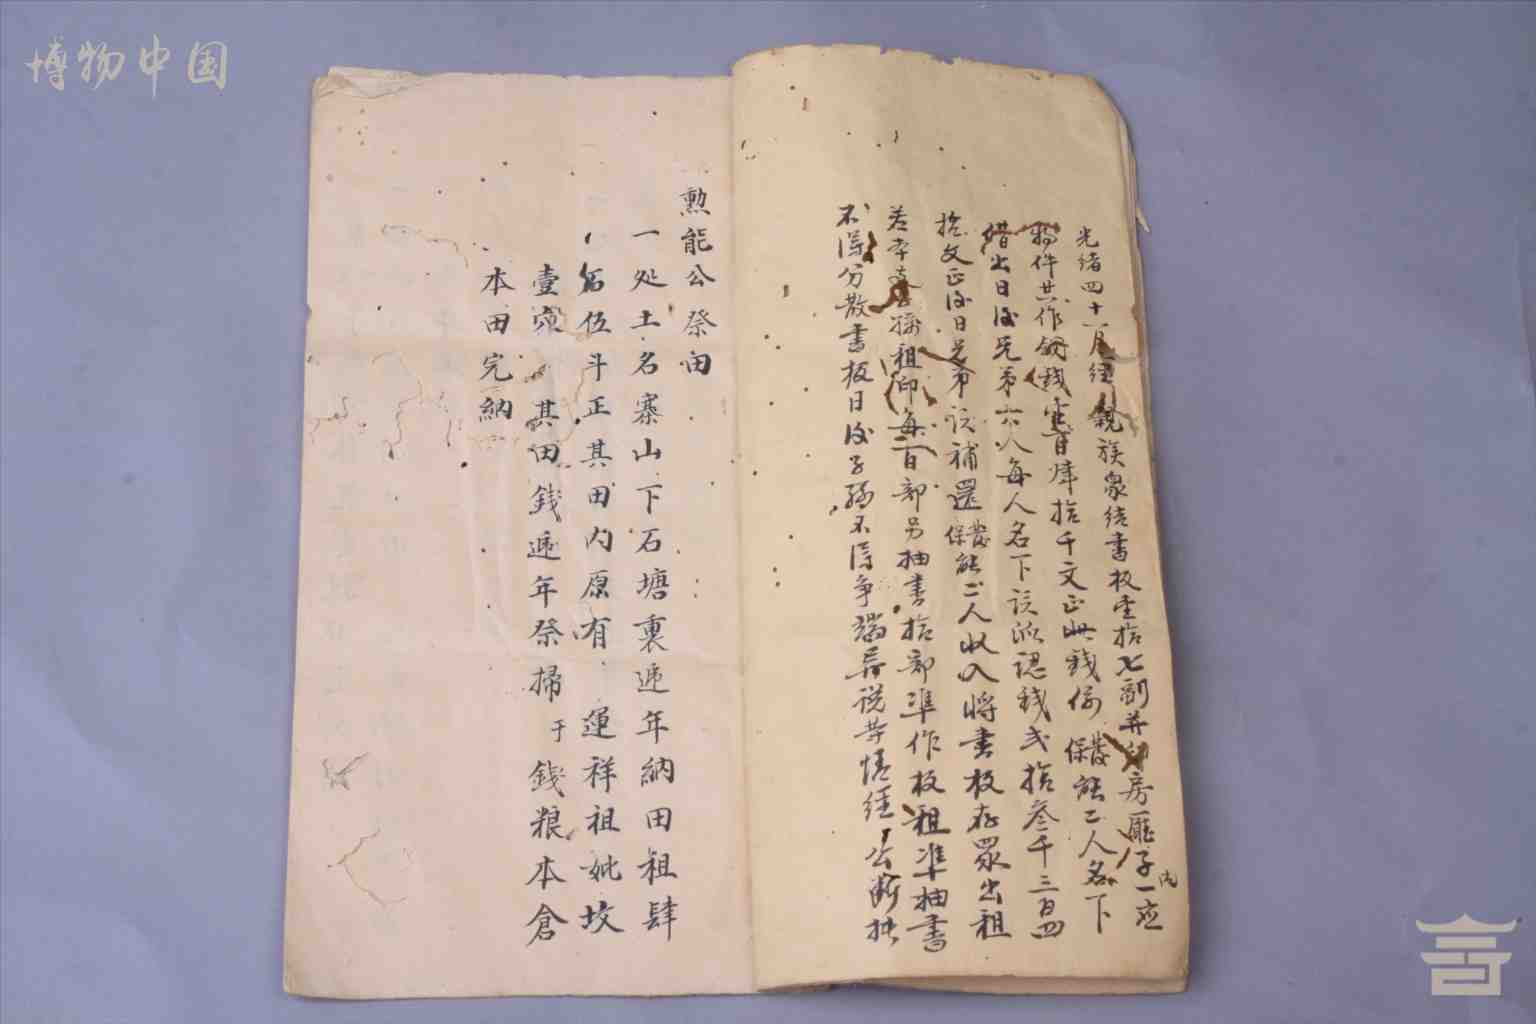 博物中国
光緒四十一月經親族衆结書板壹拾七副并印房雁子一应
物件共作銅錢壹百肆拾千文正此錢係發保能二人名下
借出日後兄弟六人每人名下該派認錢弍拾叁千三百四
拾文正後日兄弟該補還發保能二人收入將書板存衆出租
若本 接租印每一百部另抽書拾部準作板租準抽書
不得分散書板日後子孫不得争端异说等情經公断
勲能公祭田
一处土名寨山下石塘裏遞年納田租肆
伍斗正其田内原有運祥祖妣坟
壹塚其田錢遞年祭掃于錢粮本倉
本田完納